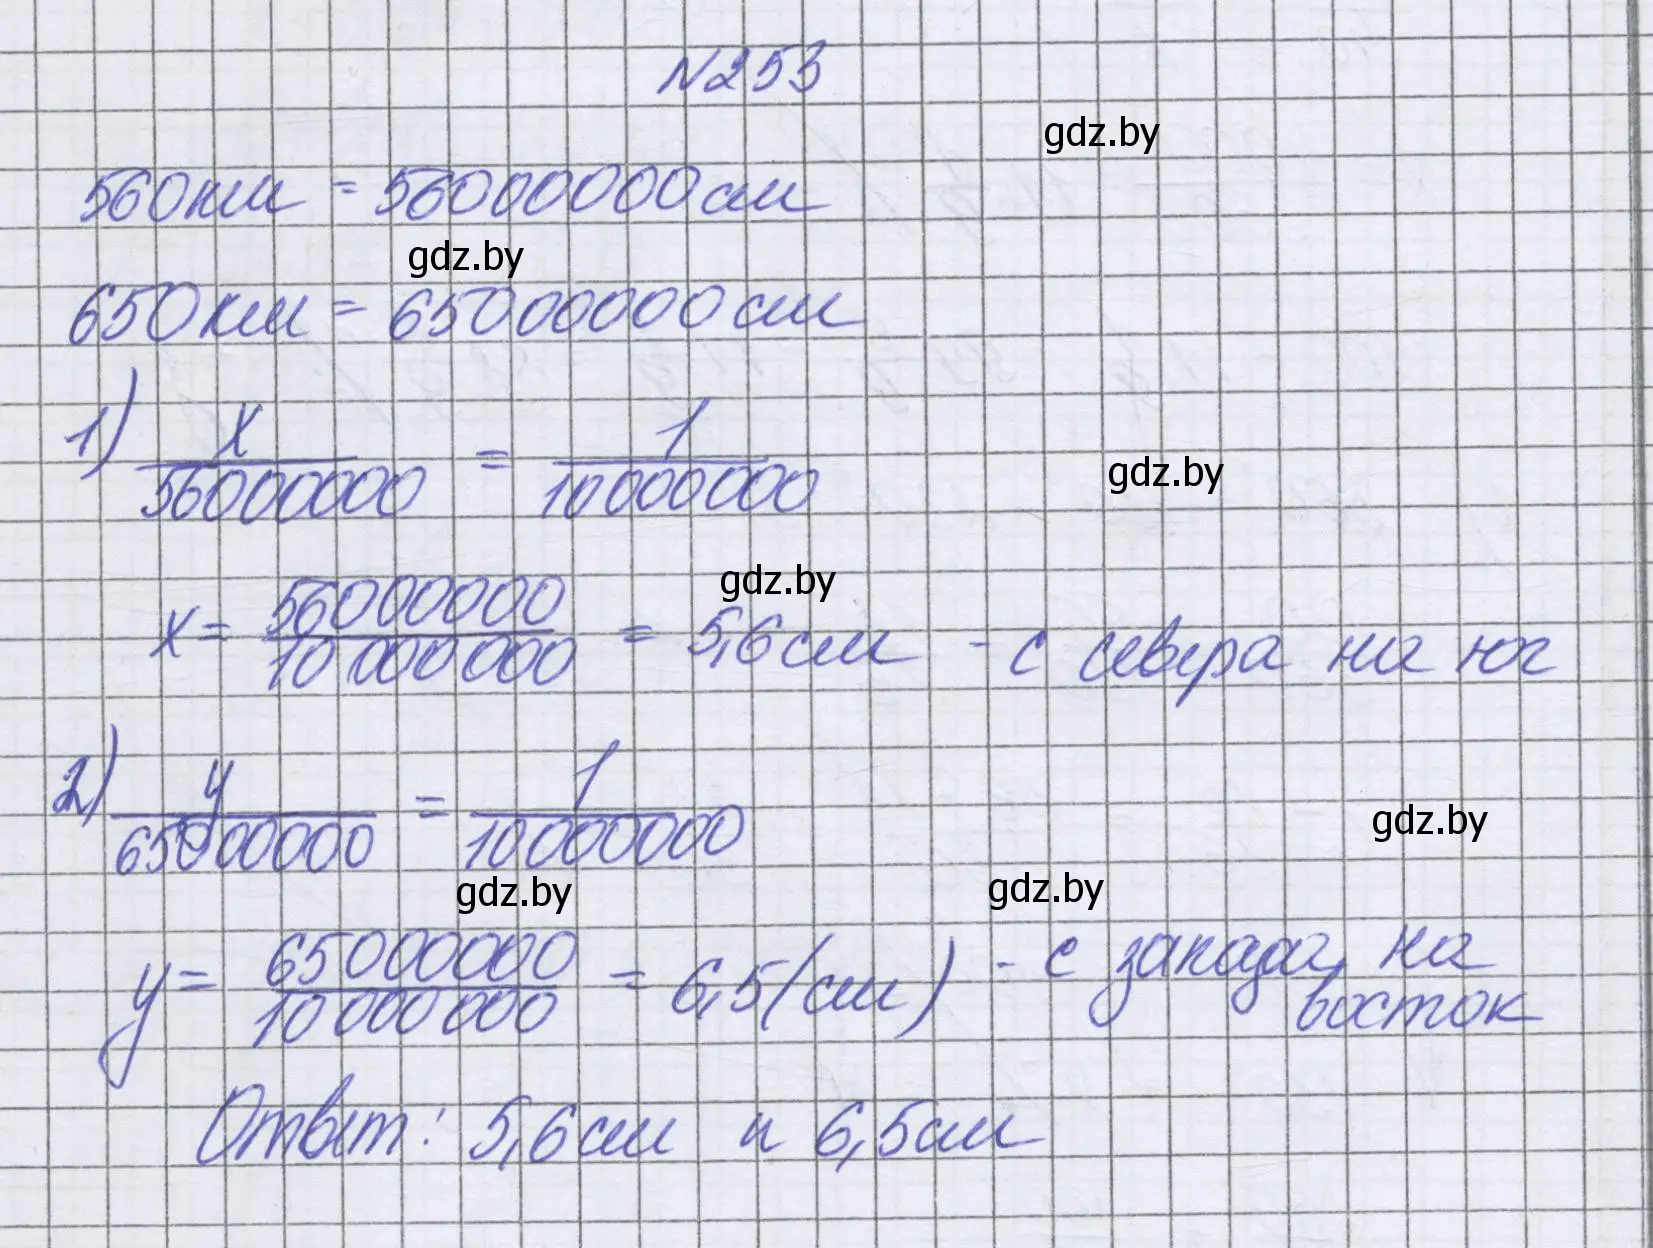 N253
gdz.by
560км = 56000000см
gdz.by
650км = 65000000см
1) x/56000000 = 1/10000000
gdz.by
gdz.by
x = 56000000/10 000 000 = 5,6см - с севера на юг
2) y/65000000 = 1/10000000
gdz.by
gdz.by
gdz.by
y = 65000000/10 000 000 = 6,5(см) - с запада на
восток
Ответ: 5,6см и 6,5см